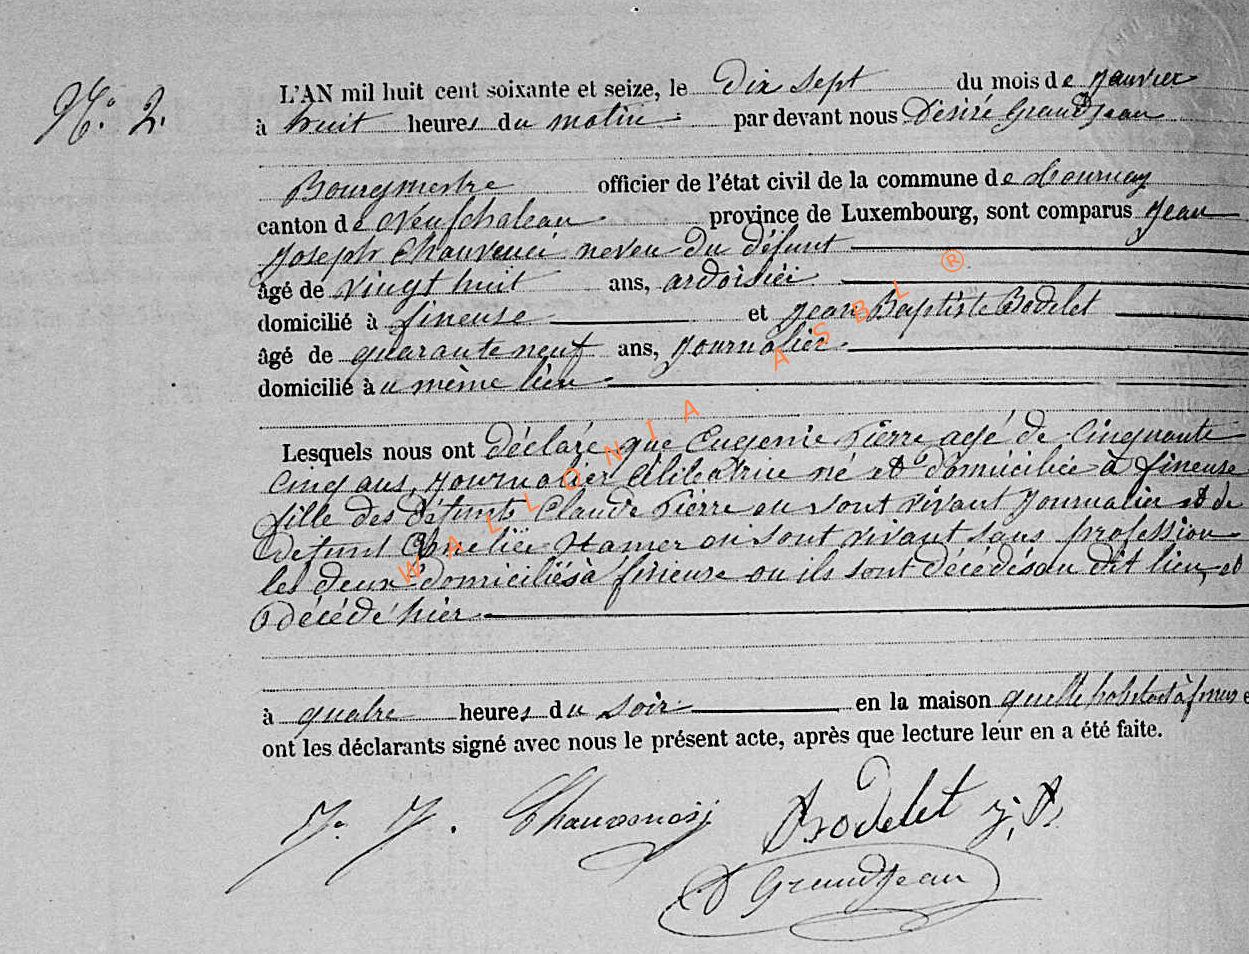 N.º 2.
L'AN mil huit cent soixante et seize, le Dix sept du mois de Janvier
à huit heures du matin par devant nous Désiré Grandjean
Bourgmestre officier de l'état civil de la commune de Tournay
canton de Neufchateau province de Luxembourg, sont comparus Jean
Joseph Chauvenci neveu du défunt
âgé de vingt huit ans, ardoisiei
domicilié à fineuse et Jean Baptiste Bodelet
âgé de quarante neuf ans, Journalier
domicilié au même lieu
Lesquels nous ont déclaré que Eugenie Pierre agé de Cinquante
Cinq ans, journalier Célibatrice né et domiciliée à fineuse
fille des défunts Claude Pierre en sont vivant Journalier et de
défunt Hamer en sont vivant sans profession
les deux domiciliés à fineuse ou ils sont décédés au dit lieu, et
décédé hier
à quatre heures du soir en la maison quelle à fineuse
ont les déclarants signé avec nous le présent acte, après que lecture leur en a été faite.
J. J. Bodelet J, B,
D Grandjean
WALLONIA ASBL ®